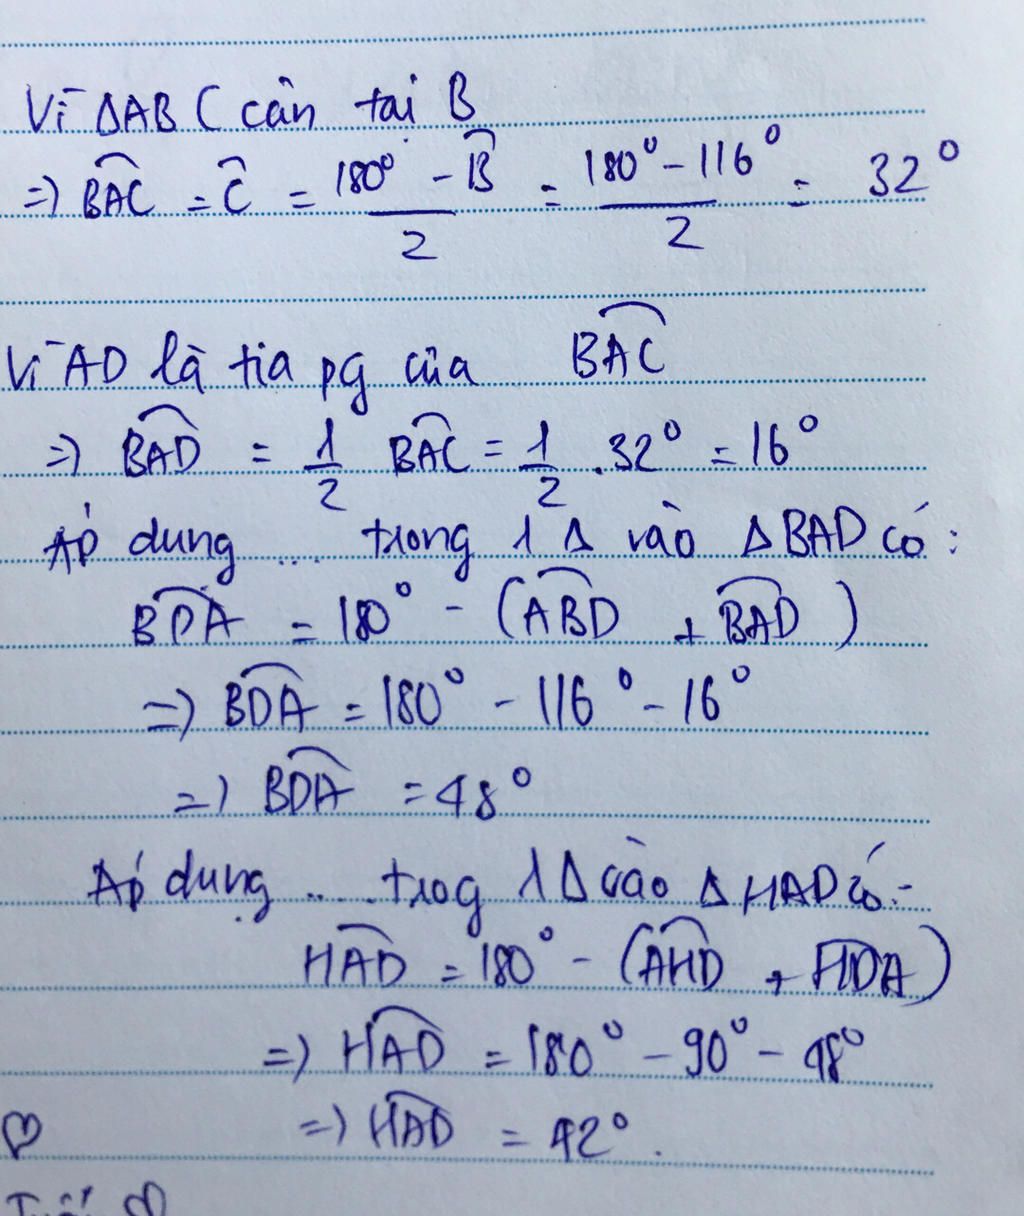 Vì ΔABC cân tại B
=> BAC = C = (180° - B)/2 = (180° - 116°)/2 = 32°
Vì AD là tia pg của BAC
=> BAD = 1/2 BAC = 1/2 . 32° = 16°
Áp dung .... trong 1 Δ vào Δ BAD có :
BDA = 180° - (ABD + BAD)
=> BDA = 180° - 116° - 16°
=> BDA = 48°
Áp dụng ..... trog 1 Δ vào Δ HAD có :
HAD = 180° - (AHD + HDA)
=> HAD = 180° - 90° - 48°
♡ => HAD = 42° .